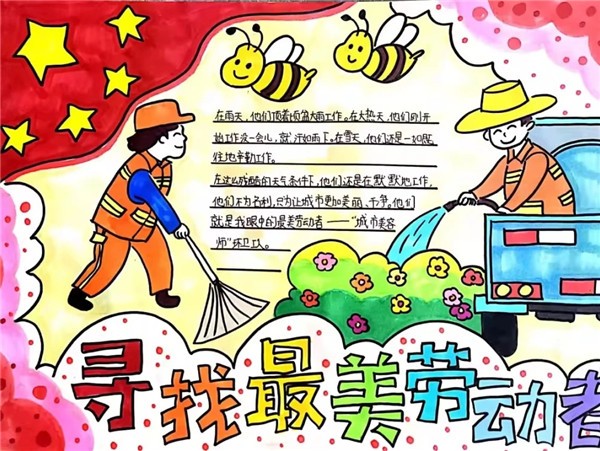 在雨天，他们顶着倾盆大雨工作。在大热天，他们刚开
始工作没一会儿，就汗如雨下。在雪天，他们还是一如既
往地辛勤工作。
在这么残酷的天气条件下，他们还是在默默地工作，
他们不为名利，只为让城市更加美丽、干净，他们
就是我眼中的最美劳动者——"城市美容
师"环卫
寻找最美劳动者